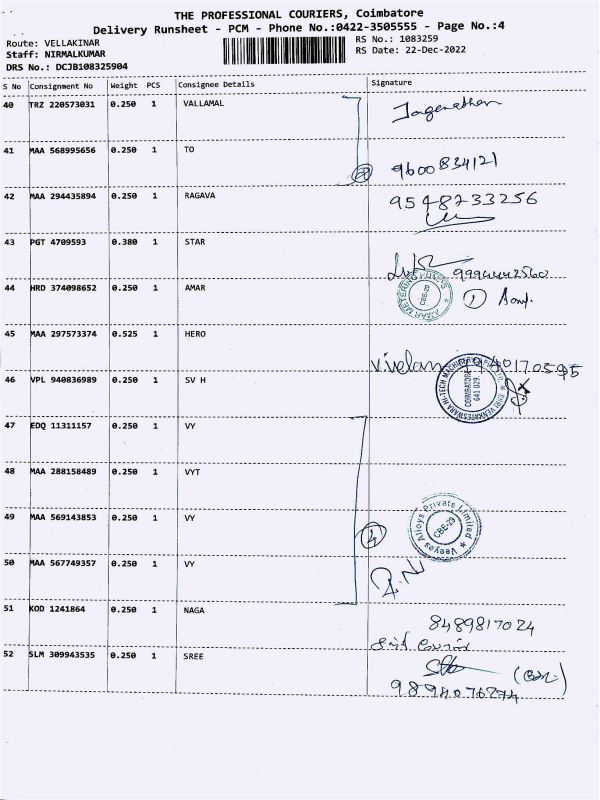 THE PROFESSIONAL COURIERS, Coimbatore
Delivery Runsheet - PCM - Phone No.:0422-3505555 - Page No.:4
Route: VELLAKINAR
RS No.: 1083259
Staff: NIRMALKUMAR
RS Date: 22-Dec-2022
DRS No.: DCJB108325904
S No Consignment No Weight PCS Consignee Details Signature
40 TRZ 220573031 0.250 1 VALLAMAL
41 MAA 568995656 0.250 1 TO 9600834121
42 MAA 294435894 0.250 1 RAGAVA 9548733256
43 PGT 4709593 0.380 1 STAR
44 HRD 374098652 0.250 1 AMAR
CBE-29
45 MAA 297573374 0.525 1 HERO
V.velan
46 VPL 940836989 0.250 1 SV H
COIMBATORE
641 029
47 EDQ 11311157 0.250 1 VY
48 MAA 288158489 0.250 1 VYT
49 MAA 569143853 0.250 1 VY
4
Veeyes Alloys Private Limited
CBE-29
50 MAA 567749357 0.250 1 VY
51 KOD 1241864 0.250 1 NAGA 8489817024
52 SLM 309943535 0.250 1 SREE
9894076274